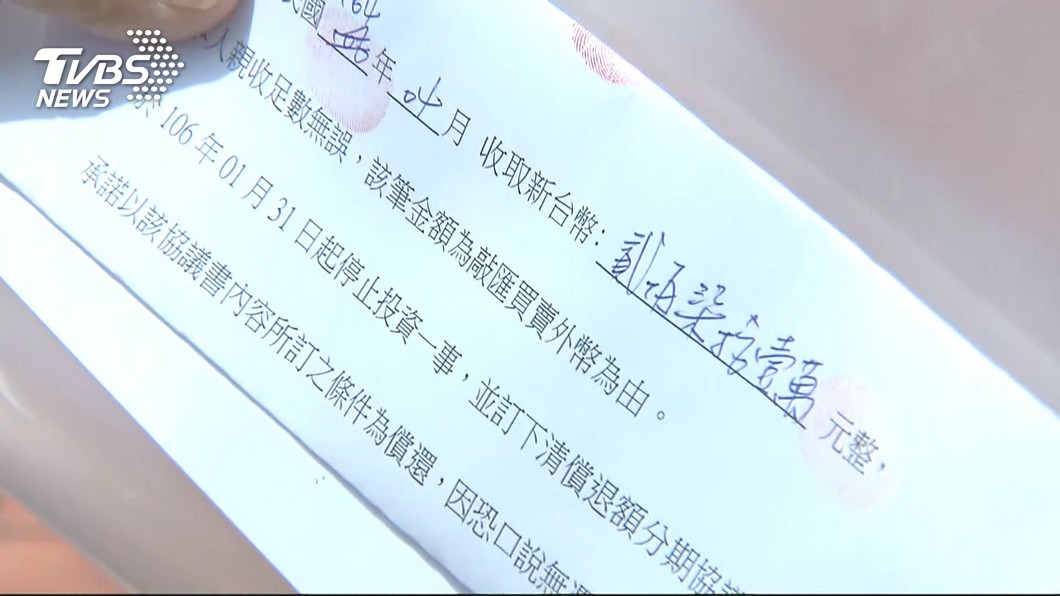 TVBS
NEWS
民國 年 月 收取新台幣： 壹萬 元整，
人親收足數無誤，該筆金額為敲匯買賣外幣為由。
於 106 年 01 月 31 日起停止投資一事，並訂下清償退額分期協議
承諾以該協議書內容所訂之條件為償還，因恐口說無憑